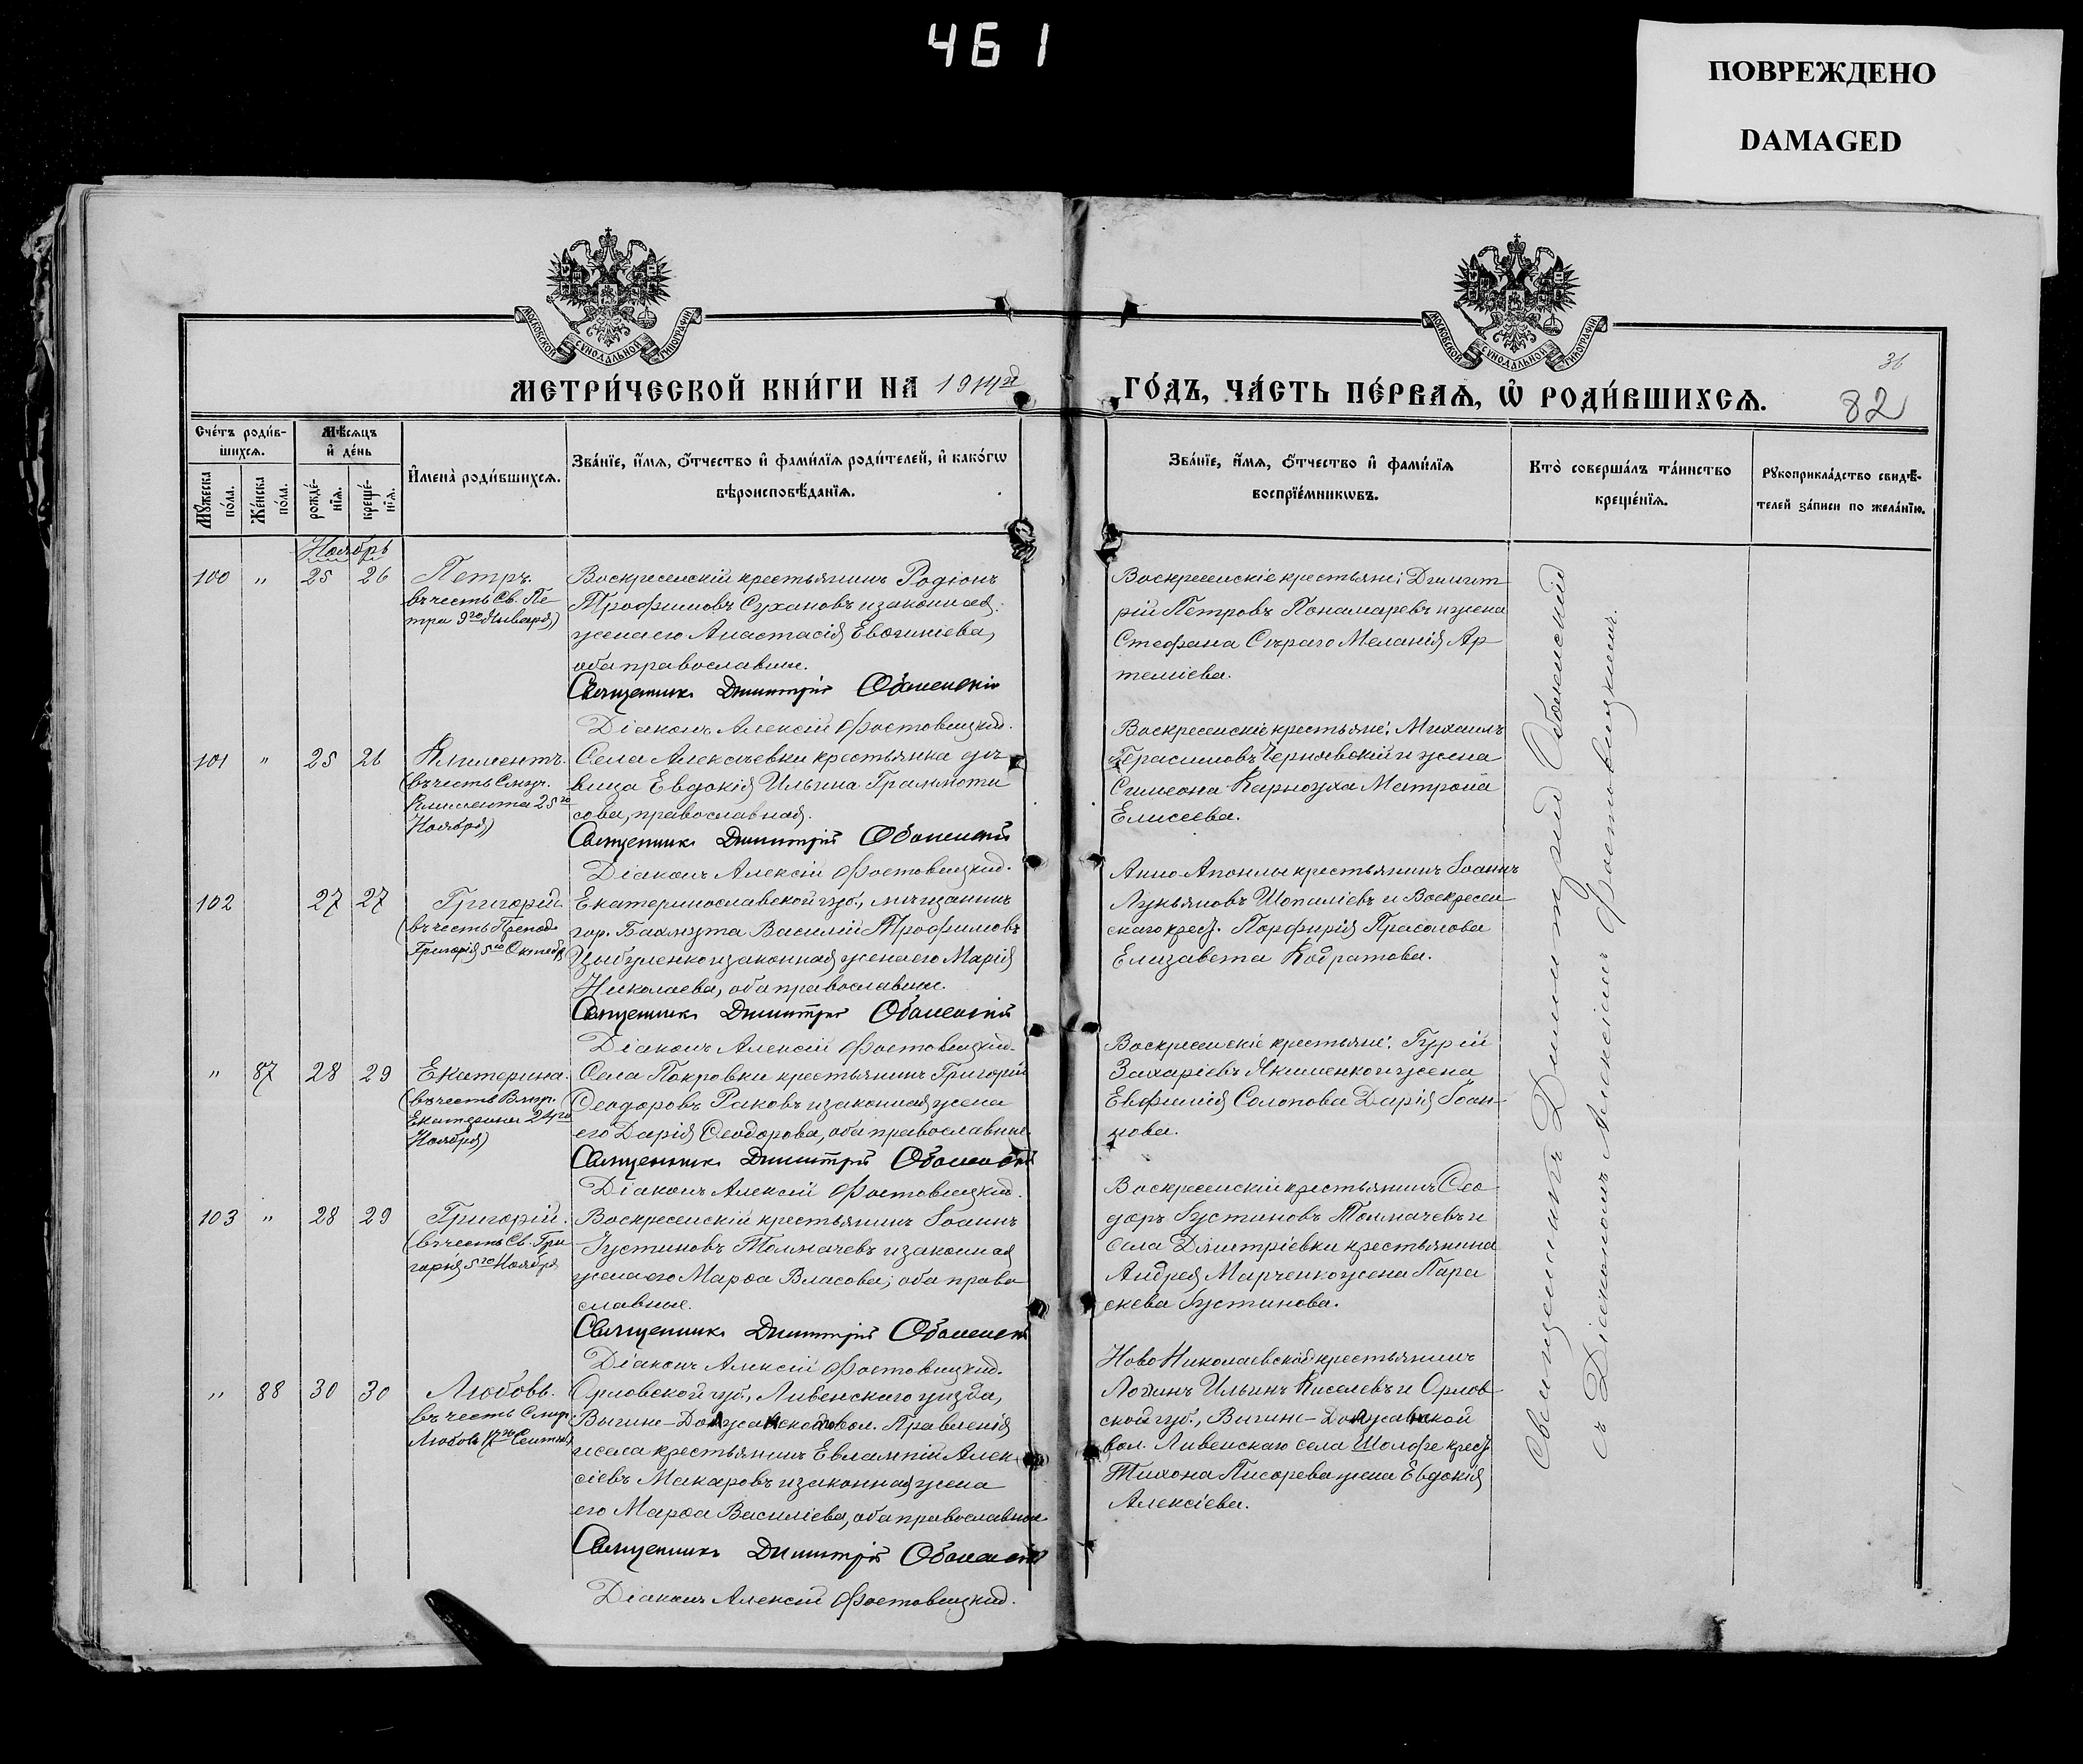 461
ПОВРЕЖДЕНО
DAMAGED
МОСКОВСКОЙ СѴНОДАЛЬНОЙ ТИПОГРАФІИ
МОСКОВСКОЙ СѴНОДАЛЬНОЙ ТИПОГРАФІИ
МЕТРИ́ЧЕСКОЙ КНИ́ГИ НА 1914й
ГО́ДЪ, ЧА́СТЬ ПЕ́РВАѦ, Ѡ҆ РОДИ́ВШИХСѦ.
36
82
Сче́тъ роди́в-
шихсѧ.
Мѣ́сѧцъ
и҆ де́нь
Мꙋ́жеска
по́ла.
Же́нска
по́ла.
рожде́-
нїѧ.
креще́-
нїѧ.
И҆мена̀ роди́вшихсѧ.
Зва́нїе, и҆́мѧ, ѻ҆́тчество и҆ фами́лїѧ роди́телей, и҆ како́гѡ
вѣроисповѣ́данїѧ.
Зва́нїе, и҆́мѧ, ѻ҆́тчество и҆ фами́лїѧ
воспрїе́мникѡвъ.
Кто̀ соверша́лъ та́инство
креще́нїѧ.
Рꙋкоприкла́дство свидѣ́-
телей за́писи по жела́нїю.
Ноябрь
100 " 25 26 Петръ.
въ честь Св. Пе-
тра 9го Января)
Воскресенскій крестьянинъ Родіонъ
Трофимовъ Сухановъ и законная
жена его Анастасія Евгеніева,
оба православные.
Священникъ Димитрій Оболенскій
Діаконъ Алексій Фостовицкій.
Воскресенскіе крестьяне: Димит
рій Петровъ Пономаревъ и жена
Стефана Сѣраго Меланія Ар-
теміева.
101 " 25 26 Климентъ.
(въ честь Смуч.
Климента 25го
Ноября)
Села Алексѣевки крестьянка дѣ
вица Евдокія Ильина
сова, православная.
Священникъ Димитрій Оболенскій
Діаконъ Алексій Фостовицкій.
Воскресенскіе крестьяне: Михаилъ
Герасимовъ Чернявскій и жена
Симеона Карноуха Матрона
Елисеева.
102 27 27 Григорій
(въ честь Препод.
Григорія 5го Октябр
Екатеринославской губ., мѣщанинъ
гор. Бахмута Василій Трофимовъ
Цыбуленко и законная жена его Марія
Николаева, оба православные.
Священникъ Димитрій Оболенскій
Діаконъ Алексій Фостовицкій.
крестьянинъ Іоаннъ
Лукьяновъ и Воскресен-
скаго крест. Порфирія Прасолова
Елизавета Кодратова.
" 87 28 29 Екатерина.
(въ честь Вмуч.
Екатерины 24го
Ноября)
Села Покровки крестьянинъ Григорій
Ѳеодоровъ Раковъ и законная жена
его Дарія Ѳеодорова, оба православные.
Священникъ Димитрій Оболенскій
Діаконъ Алексій Фостовицкій.
Воскресенскіе крестьяне: Гурій
Захаріевъ Якименко и жена
Евфимія Солопова Дарія Іоан-
нова.
103 " 28 29 Григорій.
(въ честь Св. Гри
горія 5го Ноября
Воскресенскій крестьянинъ Іоаннъ
Іустиновъ Толмачевъ и законная
жена его Марѳа Власова, оба право
славные.
Священникъ Димитрій Оболенскій
Діаконъ Алексій Фостовицкій.
Воскресенскій крестьянинъ Ѳео
доръ Іустиновъ Толмачевъ и
села Дмитріевки крестьянина
Андрея Марченко жена Пара
скева Іустинова.
" 88 30 30 Любовь.
въ честь Смуч.
Любовь 17го Сентяб)
Орловской губ., Ливенскаго уѣзда,
вол. Правленія
и села крестьянинъ Евлампій Алек
сіевъ Макаровъ и законная жена
его Марѳа Василіева, оба православные
Священникъ Димитрій Оболенскій
Діаконъ Алексій Фостовицкій.
Ново Николаевской крестьянинъ
Логинъ Ильинъ Киселевъ и Орлов-
ской губ.,
вол. Ливенскаго села крест.
Тихона Писарева жена Евдокія
Алексіева.
Священникъ Димитрій Оболенскій
съ Діакономъ Алексіемъ Фостовицкимъ.